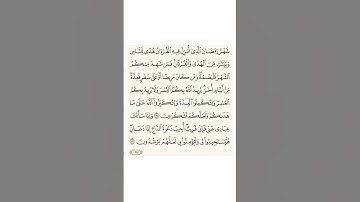 شَهْرُ رَمَضَانَ ٱلَّذِىٓ أُنزِلَ فِيهِ ٱلْقُرْءَانُ هُدًى لِّلنَّاسِ
وَبَيِّنَٰتٍ مِّنَ ٱلْهُدَىٰ وَٱلْفُرْقَانِ فَمَن شَهِدَ مِنكُمُ
ٱلشَّهْرَ فَلْيَصُمْهُ وَمَن كَانَ مَرِيضًا أَوْ عَلَىٰ سَفَرٍ فَعِدَّةٌ
مِّنْ أَيَّامٍ أُخَرَ يُرِيدُ ٱللَّهُ بِكُمُ ٱلْيُسْرَ وَلَا يُرِيدُ بِكُمُ
ٱلْعُسْرَ وَلِتُكْمِلُوا۟ ٱلْعِدَّةَ وَلِتُكَبِّرُوا۟ ٱللَّهَ عَلَىٰ مَا
هَدَىٰكُمْ وَلَعَلَّكُمْ تَشْكُرُونَ وَإِذَا سَأَلَكَ
عِبَادِى عَنِّى فَإِنِّى قَرِيبٌ أُجِيبُ دَعْوَةَ ٱلدَّاعِ إِذَا دَعَانِ
فَلْيَسْتَجِيبُوا۟ لِى وَلْيُؤْمِنُوا۟ بِى لَعَلَّهُمْ يَرْشُدُونَ